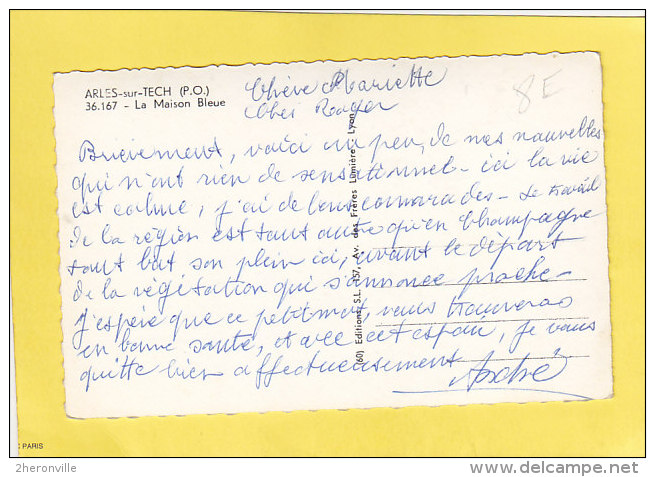 ARLES-sur-TECH (P.O.)
36.167 - La Maison Bleue
Chère Mariette
Cher Roger
8E
Brièvement, voici un peu, de mes nouvelles
qui n'ont rien de sensationnel - ici la vie
est calme, j'ai de bons camarades - Le travail
de la région est tout autre qu'en Champagne
tout bat son plein ici, avant le départ
de la végétation qui s'annonce proche -
J'espère que ce petit mot, vous trouveras
en bonne santé, et avec cet espoir, je vous
quitte bien affectueusement
André
(60) Editions S.L. 157, Av. des Frères Lumière Lyon
PARIS
2heronville
delcampe.net